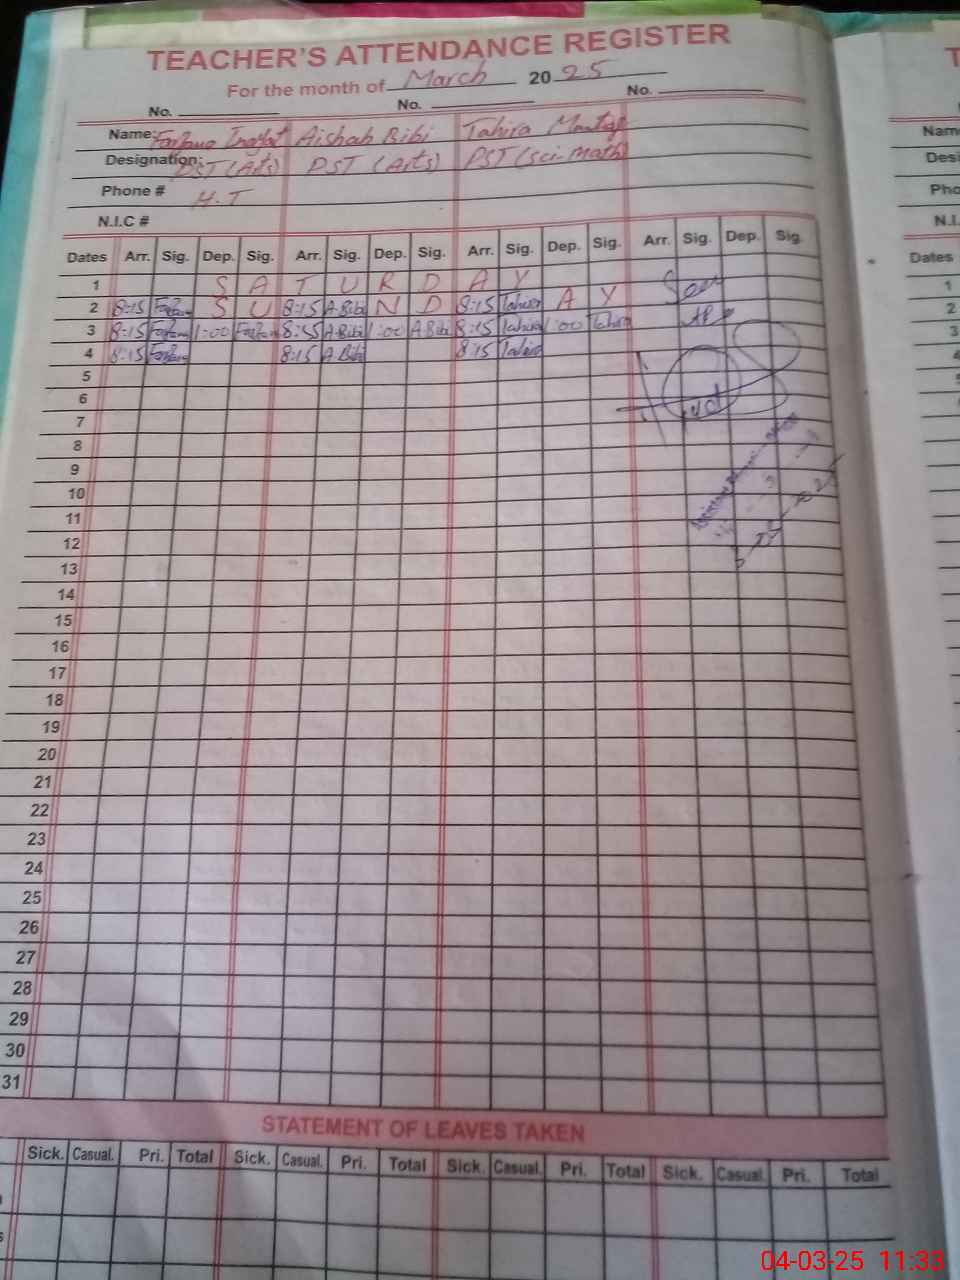 TEACHER'S ATTENDANCE REGISTER
For the month of March 2025
No. No. No.
Name: Aishah Bibi Tahira
Designation: PST (Arts) PST (Arts) PST (Sci-Math)
Phone # H.T
N.I.C #
Dates Arr. Sig. Dep. Sig. Arr. Sig. Dep. Sig. Arr. Sig. Dep. Sig. Arr. Sig. Dep. Sig.
1 S A T U R D A Y
2 8:15 S U 8:15 A.Bibi N D 8:15 Tahira A Y
3 8:15 1:00 8:55 A.Bibi 1:00 A.Bibi 8:15 Tahira 1:00 Tahira
4 8:15 8:15 A.Bibi 8:15 Tahira
5
6
7
8
9
10
11
12
13
14
15
16
17
18
19
20
21
22
23
24
25
26
27
28
29
30
31
STATEMENT OF LEAVES TAKEN
Sick. Casual. Pri. Total Sick. Casual. Pri. Total Sick. Casual. Pri. Total Sick. Casual. Pri. Total
T
Nam
Desi
Pho
N.I.
Dates
1
2
3
4
04-03-25 11:33